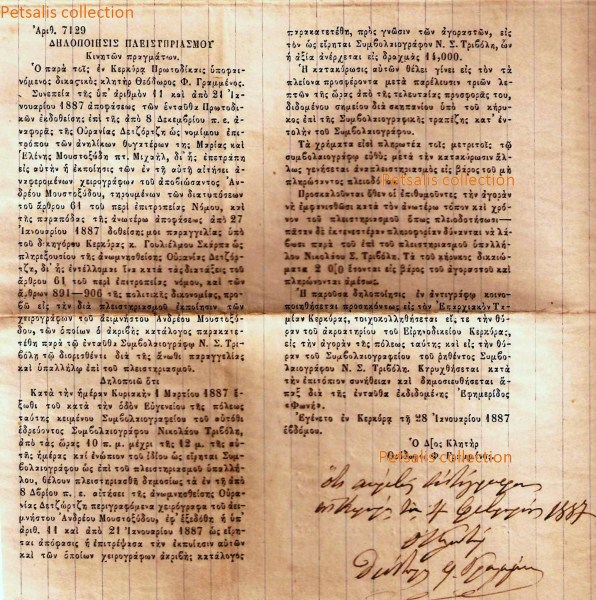 Petsalis collection
Ἀριθ. 7129
ΔΗΛΟΠΟΙΗΣΙΣ ΠΛΕΙΣΤΗΡΙΑΣΜΟΥ
Κινητῶν πραγμάτων.
Ὁ παρὰ τοῖς ἐν Κερκύρᾳ Πρωτοδίκαις ὑποφαι-
νόμενος δικαστικὸς κλητὴρ Θεόδωρος Φ. Γραμμένος.
Συνεπείᾳ τῆς ὑπ' ἀριθμὸν 11 καὶ ἀπὸ 21 Ἰα-
νουαρίου 1887 ἀποφάσεως τῶν ἐνταῦθα Πρωτοδι-
κῶν ἐκδοθείσης ἐπὶ τῆς ἀπὸ 8 Δεκεμβρίου π. ἔ. ἀνα-
φορᾶς τῆς Οὐρανίας Δετζόρτζη ὡς νομίμου ἐπι-
τρόπου τῶν ἀνηλίκων θυγατέρων της Μαρίας καὶ
Ἑλένης Μουστοξύδη πτ. Μιχαήλ, δι' ἧς ἐπετράπη
εἰς αὐτὴν ἡ ἐκποίησις τῶν ἐν τῇ αὐτῇ αἰτήσει ἀ-
ναφερομένων χειρογράφων τοῦ ἀποβιώσαντος Ἀν-
δρέου Μουστοξύδου, τηρουμένων τῶν διατυπώσεων
τοῦ ἄρθρου 61 τοῦ περὶ ἐπιτροπείας Νόμου, καὶ
τῆς παραπόδας τῆς ἀνωτέρω ἀποφάσεως ἀπὸ 27
Ἰανουαρίου 1887 δοθείσης μοι παραγγελίας ὑπὸ
τοῦ δικηγόρου Κερκύρας κ. Γουλιέλμου Σκάρπα ὡς
πληρεξουσίου τῆς ἀνωμνησθείσης Οὐρανίας Δετζόρ-
τζη, δι' ἧς ἐντέλλομαι ἵνα κατὰ τὰς διατάξεις τοῦ
ἄρθρου 61 τοῦ περὶ ἐπιτροπείας νόμου, καὶ τῶν
ἄρθρων 891—906 τῆς πολιτικῆς δικονομίας, προ-
βῶ εἰς τὴν διὰ πλειστηριασμοῦ ἐκποίησιν τῶν
χειρογράφων τοῦ ἀειμνήστου Ἀνδρέου Μουστοξύ-
δου, τῶν ὁποίων ὁ ἀκριβὴς κατάλογος παρακατε-
τέθη παρὰ τῷ ἐνταῦθα Συμβολαιογράφῳ Ν. Σ. Τρι-
βόλῃ τῷ διορισθέντι διὰ τῆς ἄνωθι παραγγελίας
καὶ ὑπαλλήλῳ ἐπὶ τοῦ πλειστηριασμοῦ.
Δηλοποιῶ ὅτι
Κατὰ τὴν ἡμέραν Κυριακὴν 1 Μαρτίου 1887
ἔξωθι τοῦ κατὰ τὴν ὁδὸν Εὐγενείου τῆς πόλεως
ταύτης κειμένου Συμβολαιογραφείου τοῦ αὐτόθι
ἑδρεύοντος Συμβολαιογράφου Νικολάου Τριβόλη,
ἀπὸ τὰς ὥρας 10 π. μ. μέχρι τῆς 12 μ. τῆς αὐ-
τῆς ἡμέρας καὶ ἐνώπιον τοῦ ἰδίου ὡς εἴρηται Συμ-
βολαιογράφου ὡς ἐπὶ τοῦ πλειστηριασμοῦ ὑπαλλή-
λου, θέλουν πλειστηριασθῆ δημοσίως τὰ ἐν τῇ ἀπὸ
8 Δβρίου π. ἔ. αἰτήσει τῆς ἀνωμνησθείσης Οὐρα-
νίας Δετζόρτζη περιγραφόμενα χειρόγραφα τοῦ ἀει-
μνήστου Ἀνδρέου Μουστοξύδου, ἐφ' ἧς ἐξεδόθη ἡ ὑπ'
ἀριθ. 11 καὶ ἀπὸ 21 Ἰανουαρίου 1887 ὡς εἴρη-
ται ἀπόφασις ἡ ἐπιτρέψασα τὴν ἐκποίησιν αὐτῶν
καὶ τῶν ὁποίων χειρογράφων ἀκριβὴς κατάλογος
παρακατετέθη, πρὸς γνῶσιν τῶν ἀγοραστῶν, εἰς
τὸν ὡς εἴρηται Συμβολαιογράφον Ν. Σ. Τριβόλην, ὧν
ἡ ἀξία ἀνέρχεται εἰς δραχμὰς 14,000.
Ἡ κατακύρωσις αὐτῶν θέλει γίνει εἰς τὸν τὰ
πλείονα προσφέροντα μετὰ παρέλευσιν τριῶν λε-
πτῶν τῆς ὥρας ἀπὸ τῆς τελευταίας προσφορᾶς του,
διδομένου σημείου διὰ σκηπανίου ὑπὸ τοῦ κήρυ-
κος ἐπὶ τῆς Συμβολαιογραφικῆς τραπέζης κατ' ἐν-
τολὴν τοῦ Συμβολαιογράφου.
Τὰ χρήματα εἰσὶ πληρωτέα τοῖς μετρητοῖς τῷ
συμβολαιογράφῳ εὐθὺς μετὰ τὴν κατακύρωσιν ἄλ-
λως γενήσεται ἀναπλειστηριασμὸς εἰς βάρος τοῦ μὴ
πληρώσαντος πλειοδό
Petsalis collection
Προσκαλοῦνται ὅθεν οἱ ἐπιθυμοῦντες τὴν ἀγορὰν
νὰ ἐμφανισθῶσι κατὰ τὸν ἀνωτέρω τόπον καὶ χρό-
νον τοῦ πλειστηριασμοῦ ὅπως πλειοδοτήσωσι—
πᾶσαν δὲ ἐκτενεστέραν πληροφορίαν δύνανται νὰ λά-
βωσι παρὰ τοῦ ἐπὶ τοῦ πλειστηριασμοῦ ὑπαλλή-
λου Νικολάου Σ. Τριβόλη. Τὰ τοῦ κήρυκος δικαιώ-
ματα 2 0)0 ἔσονται εἰς βάρος τοῦ ἀγοραστοῦ καὶ
πληρώνονται ἀμέσως.
Ἡ παροῦσα δηλοποίησις ἐν ἀντιγράφῳ κοινο-
ποιηθήσεται προσηκόντως εἰς τὸν Ἐπαρχιακὸν Τα-
μίαν Κερκύρας, τοιχοκολληθήσεται εἰς τε τὴν θύ-
ραν τοῦ ἀκροατηρίου τοῦ Εἰρηνοδικείου Κερκύρας,
εἰς τὴν ἀγορὰν τῆς πόλεως ταύτης καὶ εἰς τὴν θύ-
ραν τοῦ Συμβολαιογραφείου τοῦ ῥηθέντος Συμβο-
λαιογράφου Ν. Σ. Τριβόλη. Κηρυχθήσεται κατὰ
τὴν ἐπιτόπιον συνήθειαν καὶ δημοσιευθήσεται ἅ-
παξ διὰ τῆς ἐνταῦθα ἐκδιδομένης Ἐφημερίδος
«Φωνῆς».
Ἐγένετο ἐν Κερκύρᾳ τῇ 28 Ἰανουαρίου 1887
ἑβδόμου.
Ὁ Δ)ος Κλητὴρ
Θεόδωρος Φ. Γραμμένος
Petsalis collection
1887